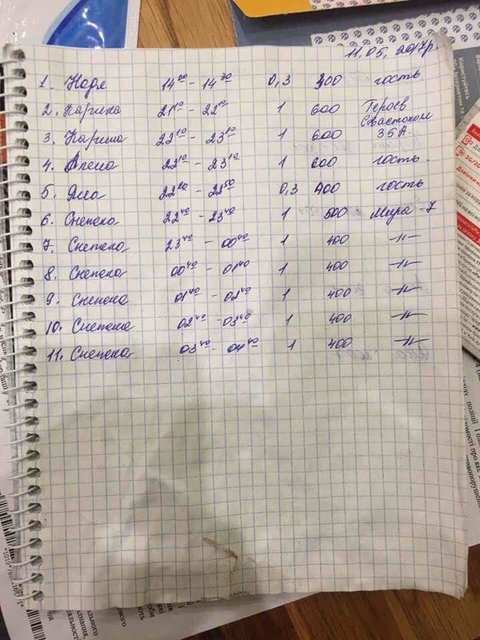 11.05.2017г.
1. Надя 14⁰⁰ - 14³⁰ 0,3 300 гость
2. Карина 21¹⁰ - 22¹⁰ 1 600 Героев
Севастополя
3. Карина 22¹⁰ - 23¹⁰ 1 600 35А.
4. Алена 22¹⁰ - 23¹⁰ 1 600 гость.
5. 22²⁰ - 22⁵⁰ 0,3 400 гость
6. Снежена 22⁴⁰ - 23⁴⁰ 1 500 Мира - 7
7. Снежена 23⁴⁰ - 00⁴⁰ 1 400 -//-
8. Снежена 00⁴⁰ - 01⁴⁰ 1 400 -//-
9. Снежена 01⁴⁰ - 02⁴⁰ 1 400 -//-
10. Снежена 02⁴⁰ - 03⁴⁰ 1 400 -//-
11. Снежена 03⁴⁰ - 04⁴⁰ 1 400 -//-